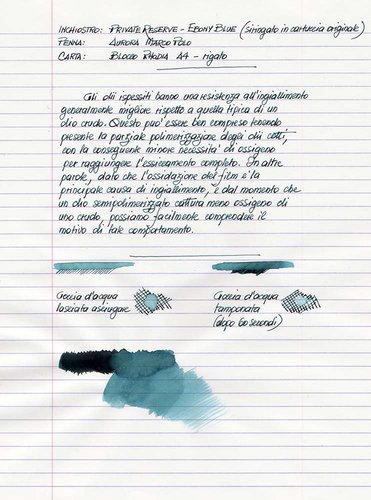 INCHIOSTRO: PRIVATE RESERVE - EBONY BLUE (siringato in cartuccia originale)
PENNA: AURORA MARCO POLO
CARTA: BLOCCO RHODIA A4 - rigato
Gli olii ispessiti hanno una resistenza all'ingiallimento
generalmente migliore rispetto a quella tipica di un
olio crudo. Questo puo' essere ben compreso tenendo
presente la parziale polimerizzazione degli olii cotti,
con la conseguente minore necessita' di ossigeno
per raggiungere l'essiccamento completo. In altre
parole, dato che l'ossidazione del film e' la
principale causa di ingiallimento, e dal momento che
un olio semipolimerizzato cattura meno ossigeno di
uno crudo, possiamo facilmente comprendere il
motivo di tale comportamento.
Goccia d'acqua
lasciata asciugare
Goccia d'acqua
tamponata
(dopo 60 secondi)